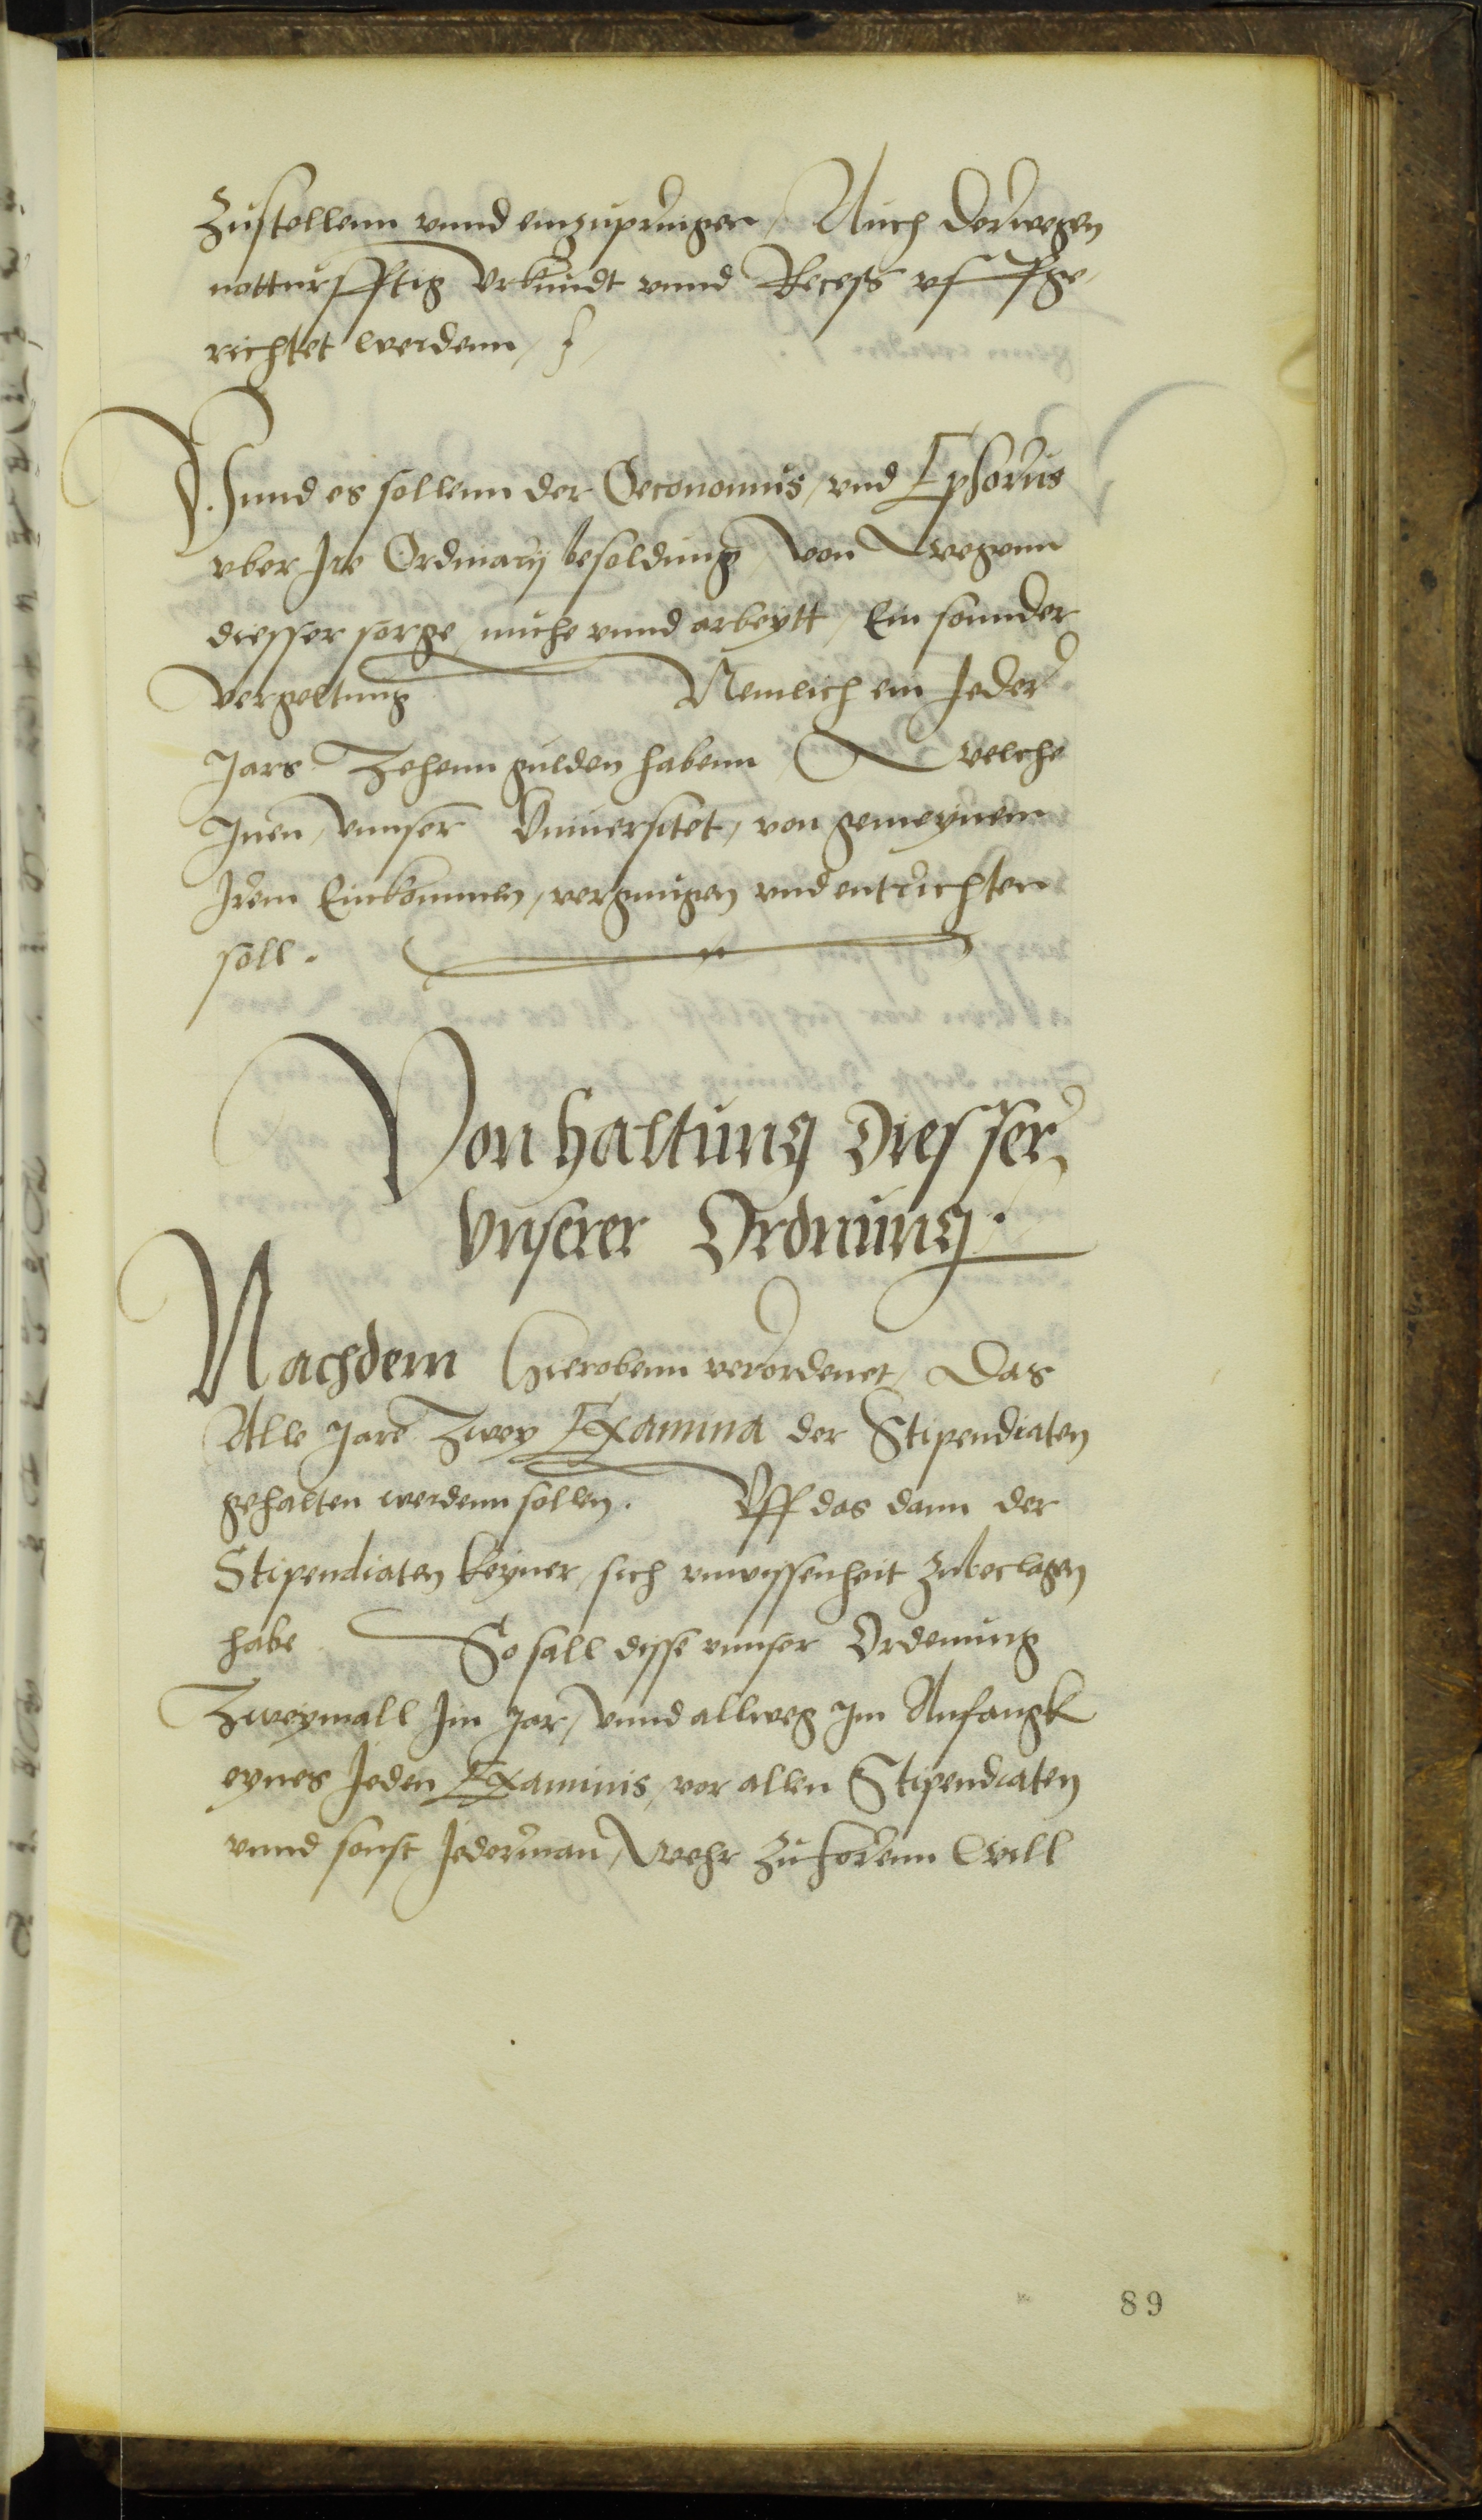 Zustellenn vnnd einzupringen / Auch derwegen
notturfftig Vrkundt vnnd Recess vffge,
richtet werdenn /
Vnnd es sollenn der Oeconomus / vnd Ephorus
vber Ire Ordinarij besoldung / von wegenn
diesser sorge / muhe vnnd arbeytt / Ein sonnder
vergeltung Nemlich ein Jeder
Jars Zehenn gulden habenn / welche
Inen / vnnser Vniuersitet / von gemeynem
Irem Einkommen / vergnugen vnd entrichten
soll.
Von haltung diesser
vnserer Ordnung.
Nachdem hierobenn verordenet / Das
Alle Jare Zwey Examina der Stipendiaten
gehalten werdenn sollen. Vff das dann der
Stipendiaten keyner / sich vnwissenheit zubeclagen
habe So sall disse vnnser Ordenung
Zweymall Im Jar / vnnd allweg Im Anfangk
eynes Jeden Examinis / vor allen Stipendiaten
vnnd sonst Jederman / Wehr zuhorenn will
89